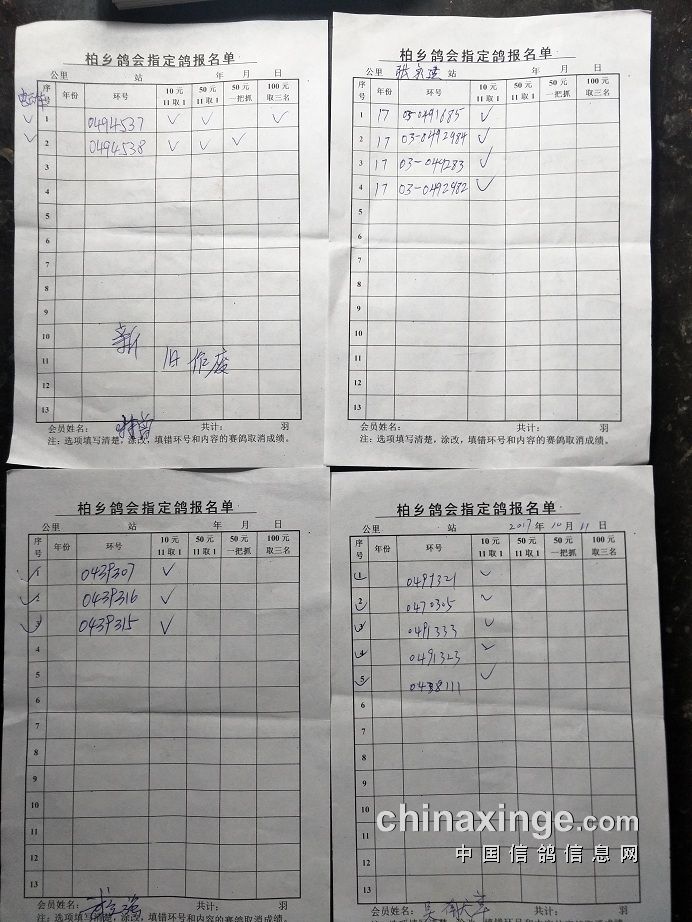 柏乡鸽会指定鸽报名单
公里 站 年 月 日
序号 年份 环号 10元11取1 50元11取1 50元一把抓 100元取三名
✓ 1 0494537 ✓ ✓ ✓
✓ 2 0494538 ✓ ✓ ✓
3
4
5
6
7
8
9
10 新
11 旧作废
12
13
会员姓名: 共计: 羽
注:选项填写清楚,涂改,填错环号和内容的赛鸽取消成绩。
柏乡鸽会指定鸽报名单
公里 站 年 月 日
序号 年份 环号 10元11取1 50元11取1 50元一把抓 100元取三名
1 17 03-0491685 ✓
2 17 03-0492984 ✓
3 17 ✓
4 17 03-0492982 ✓
5
6
7
8
9
10
11
12
13
会员姓名: 共计: 羽
注:选项填写清楚,涂改,填错环号和内容的赛鸽取消成绩。
柏乡鸽会指定鸽报名单
公里 站 年 月 日
序号 年份 环号 10元11取1 50元11取1 50元一把抓 100元取三名
✓ 1 0439307 ✓
✓ 2 0439316 ✓
✓ 3 0439315 ✓
4
5
6
7
8
9
10
11
12
13
会员姓名: 共计: 羽
注:选项填写清楚,涂改,填错环号和内容的赛鸽取消成绩。
柏乡鸽会指定鸽报名单
公里 站 2017年10月11日
序号 年份 环号 10元11取1 50元11取1 50元一把抓 100元取三名
✓ 1 0491321 ✓
✓ 2 0470305 ✓
✓ 3 0491333 ✓
✓ 4 0491323 ✓
✓ 5 0438111 ✓
6
7
8
9
10
11
12
13
会员姓名: 共计: 羽
chinaxinge.com
中国信鸽信息网